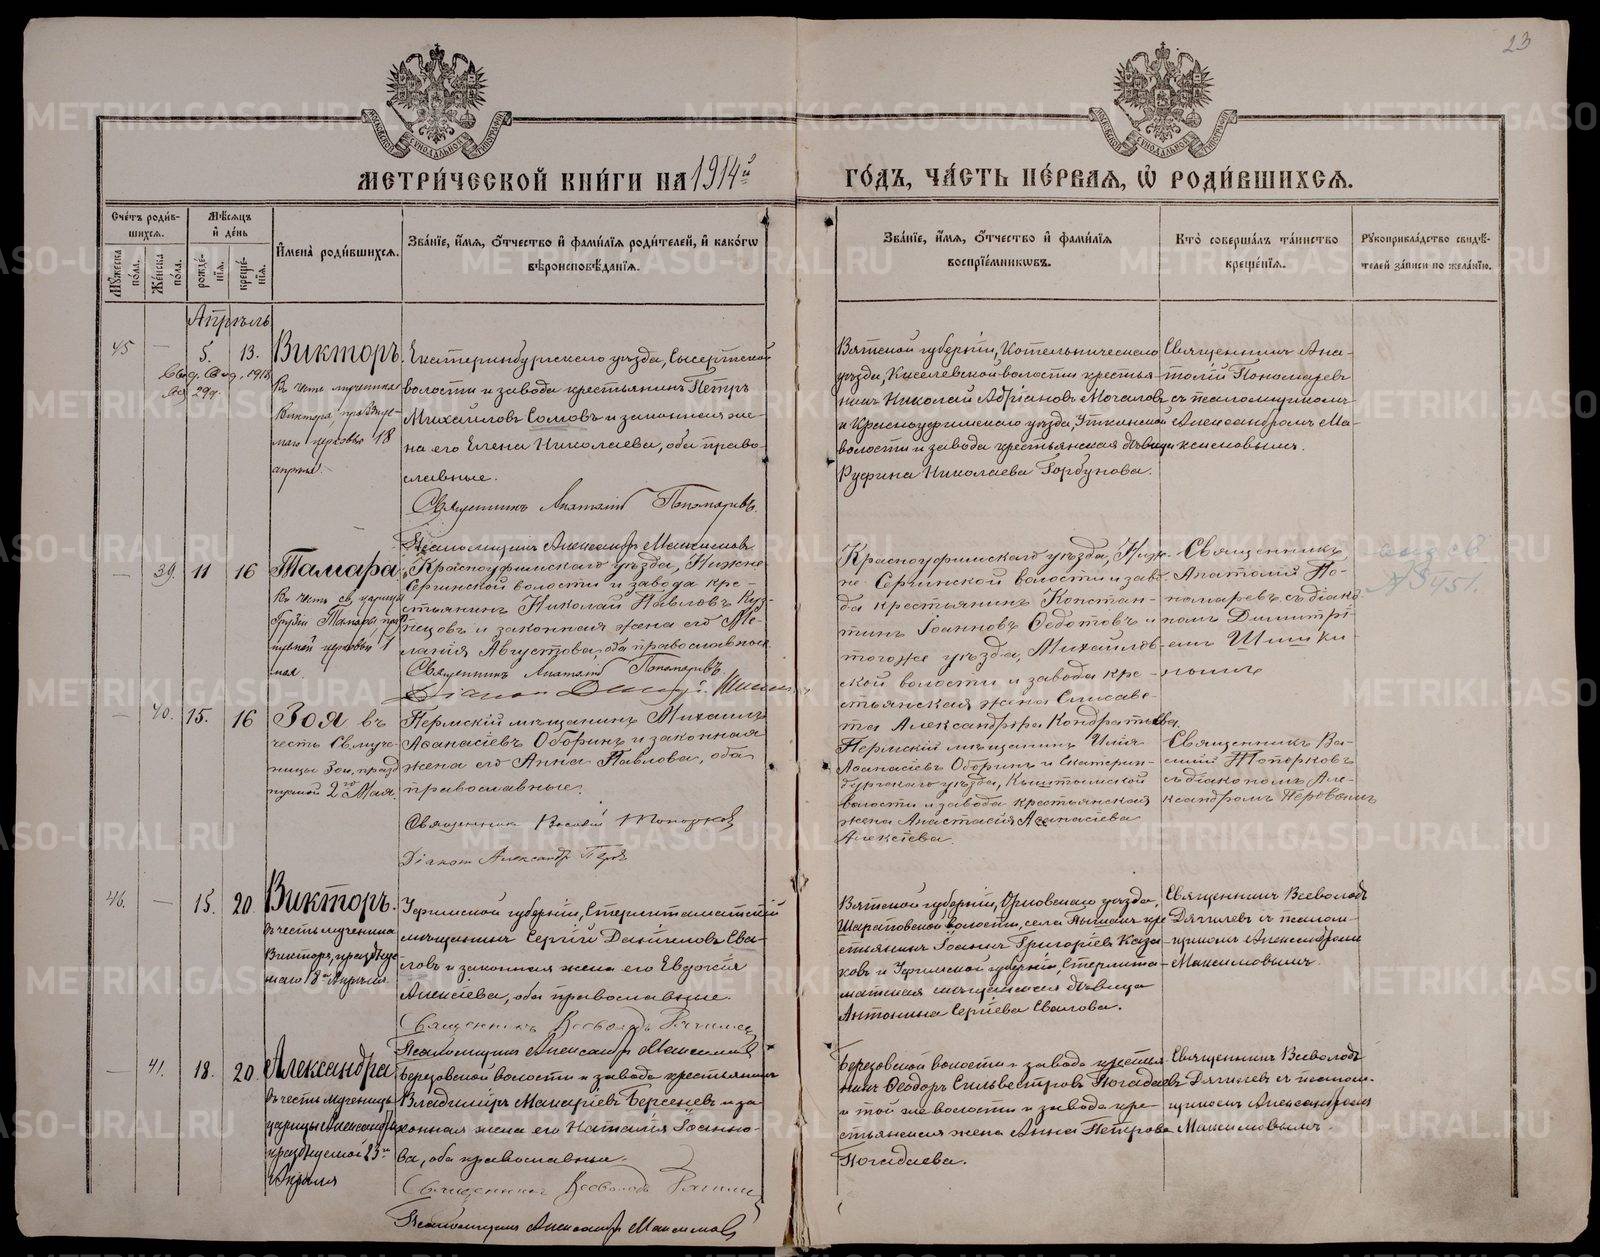 23
МЕТРИ́ЧЕСКОЙ КНИ́ГИ НА 1914й
ГО́ДЪ, ЧА́СТЬ ПЕ́РВАЯ, Ѡ РОДИ́ВШИХСЯ.
Сче́тъ роди́в-
шихся.
Мѣ́сяцъ
и де́нь
Мꙋ́жеска по́ла.
Же́нска по́ла.
рожде́-
нїя.
креще́-
нїя.
И҆мена̀ роди́вшихся.
Зва́нїе, и҆́мя, ѻ҆́тчество и҆ фами́лїя роди́телей, и҆ како́гѡ
вѣроисповѣ́данїя.
Зва́нїе, и҆́мя, ѻ҆́тчество и҆ фами́лїя
воспрїе́мниковъ.
Кто̀ соверша́лъ та́инство
креще́нїя.
Рꙋкоприкла́дство свидѣ́-
телей за́писи по жела́нїю.
Апрѣль
45
—
5.
13.
Викторъ.
Въ честь мученика
Виктора, праздну-
емаго церковью 18
апрѣля.
Екатеринбургскаго уѣзда, Сысертской
волости и завода крестьянинъ Петръ
Михаиловъ Сомовъ и законная же-
на его Елена Николаева, оба право-
славные.
Священникъ Анатолій Пономаревъ.
Псаломщикъ Александръ Максимовъ
Вятской губерніи, Котельническаго
уѣзда, Киселевской волости крестья-
нинъ Николай Адріановъ Мочаловъ
и Красноуфимскаго уѣзда, Уткинской
волости и завода крестьянская дѣвица
Руфина Николаева Горбунова.
Священникъ Ана-
толій Пономаревъ
съ псаломщикомъ
Александромъ Ма-
ксимовымъ.
—
39.
11
16
Тамара
Въ честь св. царицы
Тамары, праз-
церковью 1
мая.
Красноуфимскаго уѣзда, Нижне
Сергинской волости и завода кре-
стьянинъ Николай Павловъ Куз-
нецовъ и законная жена его Ме-
ланія Августова, оба православные.
Священникъ Анатолій Пономаревъ
Діаконъ
Красноуфимскаго уѣзда, Ниж-
не-Сергинской волости и заво-
да крестьянинъ Констан-
тинъ Іоанновъ Ѳедотовъ и
того же уѣзда, Михайлов-
ской волости и завода кре-
стьянская жена Елисаве-
та Александрова Кондратьева.
Священникъ
Анатолій По-
номаревъ съ діако-
номъ Димитрі-
емъ Шишки-
нымъ
№ 451.
—
40.
15.
16
Зоя въ
честь Св. муче-
ницы Зои, празд-
нуемой 2го Мая.
Пермскій мѣщанинъ Михаилъ
Аѳанасіевъ Оборинъ и законная
жена его Анна Павлова, оба
православные.
Священникъ Василій Топорковъ
Діаконъ Александръ
Пермскій мѣщанинъ Илія
Аѳанасіевъ Оборинъ и Екатерин-
бургскаго уѣзда, Кыштымской
волости и завода крестьянская
жена Анастасія Аѳанасіева
Алексіева.
Священникъ Ва-
силій Топорковъ
съ діакономъ Але-
ксандромъ
46.
—
15.
20.
Викторъ.
въ честь мученика
Виктора, праздуе-
маго 18го Апрѣля.
Уфимской губерніи, Стерлитамакскій
мѣщанинъ Сергій Даніиловъ Ева-
ловъ и законная жена его Евдокія
Алексіева, оба православные.
Священникъ Всеволодъ Дягилевъ
Псаломщикъ Александръ Максимовъ
Вятской губерніи, Орловскаго уѣзда,
Шараповской волости, села кре-
стьянинъ Іоаннъ Григоріевъ Каза-
ковъ и Уфимской губерніи, Стерлита-
макская мѣщанская дѣвица
Антонина Сергіева Евалова.
Священникъ Всеволодъ
Дягилевъ съ псалом-
щикомъ Александромъ
Максимовымъ.
—
41.
18.
20.
Александра
въ честь мученицы
царицы Александры
празднуемой 23го
Апрѣля
Березовской волости и завода крестьянинъ
Владиміръ Макаріевъ Берсеневъ и за-
конная жена его Наталія Іоанно-
ва, оба православные.
Священникъ Всеволодъ Дягилевъ
Псаломщикъ Александръ Максимовъ
Березовской волости и завода крестья-
нинъ Ѳеодоръ Сильвестровъ Погадаевъ
и той же волости и завода кре-
стьянская жена Анна Петрова
Погадаева.
Священникъ Всеволодъ
Дягилевъ съ псалом-
щикомъ Александромъ
Максимовымъ.
METRIKI.GASO-URAL.RU